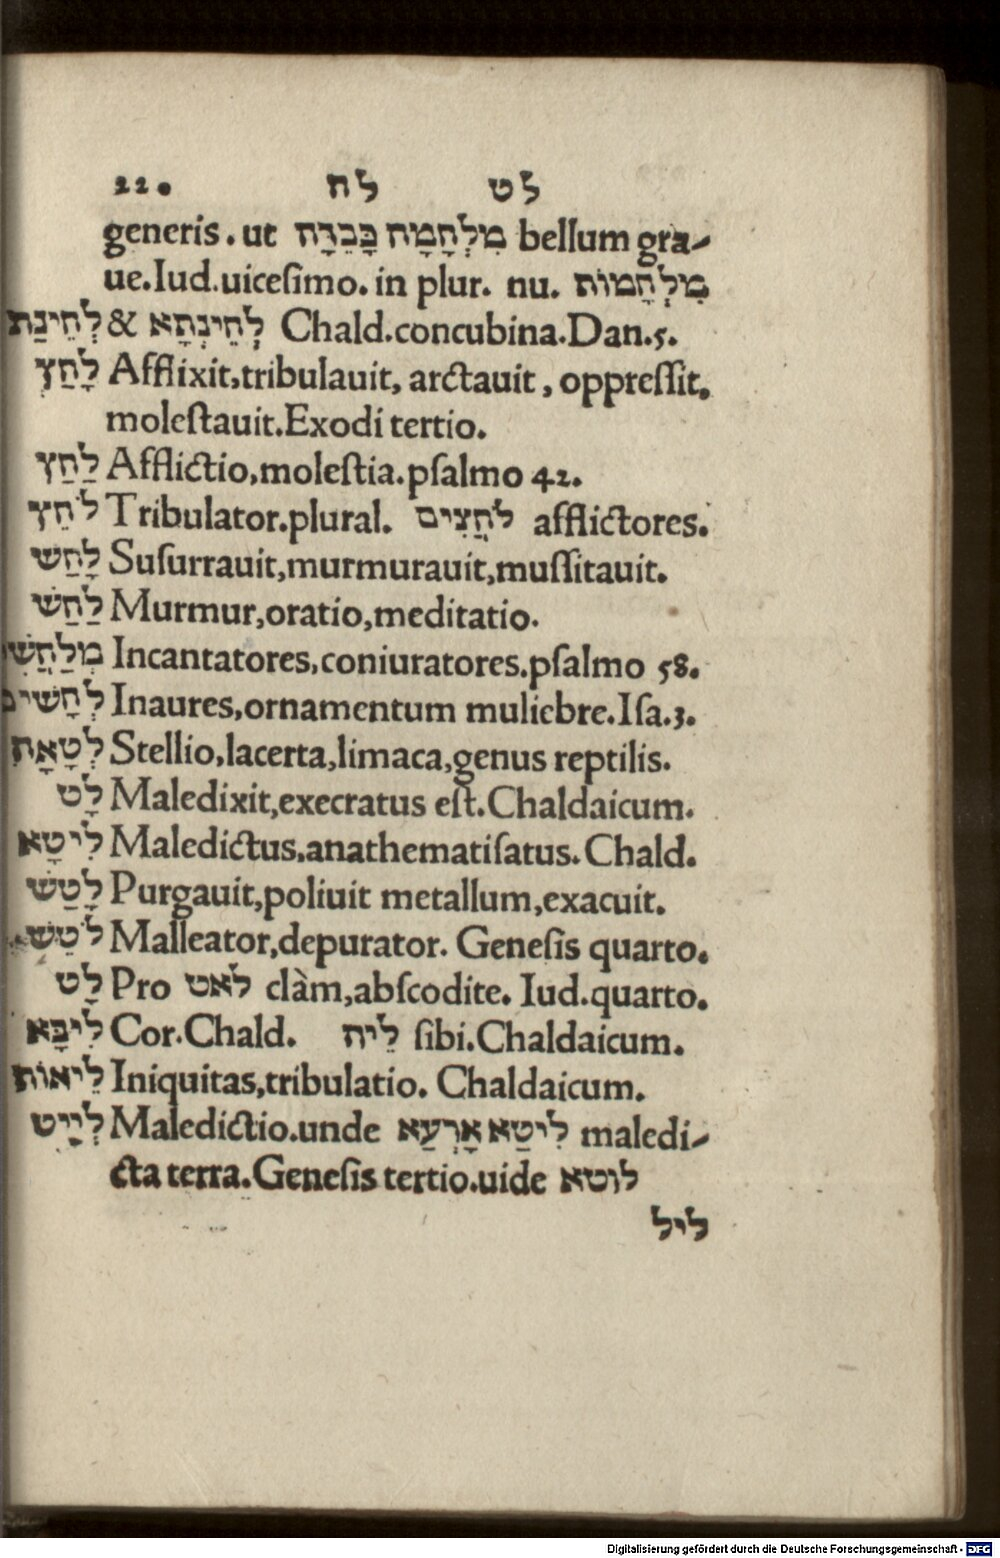 22. לח לט
generis.ut מִלְחָמָה כָּבֵדָה bellum gra-
ue.Iud.uicesimo.in plur. nu. מִלְחָמוֹת
לְחֵינַת & לְחֵינְתָא Chald.concubina.Dan.5.
לָחַץ Afflixit,tribulauit, arctauit, oppressit,
molestauit.Exodi tertio.
לַחַץ Afflictio,molestia.psalmo 42.
לֹחֵץ Tribulator.plural. לֹחֲצִים afflictores.
לָחַשׁ Susurrauit,murmurauit,mussitauit.
לַחַשׁ Murmur,oratio,meditatio.
Incantatores,coniuratores.psalmo 58.
לְחָשִׁים Inaures,ornamentum muliebre.Isa.3.
לְטָאָה Stellio,lacerta,limaca,genus reptilis.
לָט Maledixit,execratus est.Chaldaicum.
לִיטָא Maledictus,anathematisatus.Chald.
לָטַשׁ Purgauit,poliuit metallum,exacuit.
לֹטֵשׁ Malleator,depurator. Genesis quarto.
לָט Pro לאט clàm,abscodite. Iud.quarto.
לִיבָּא Cor.Chald. לֵיה sibi.Chaldaicum.
לֵיאוֹת Iniquitas,tribulatio. Chaldaicum.
לְיָיט Maledictio.unde לִיטַא אָרְעַא maledi-
cta terra.Genesis tertio.uide לוטא
ליל
Digitalisierung gefördert durch die Deutsche Forschungsgemeinschaft - DFG